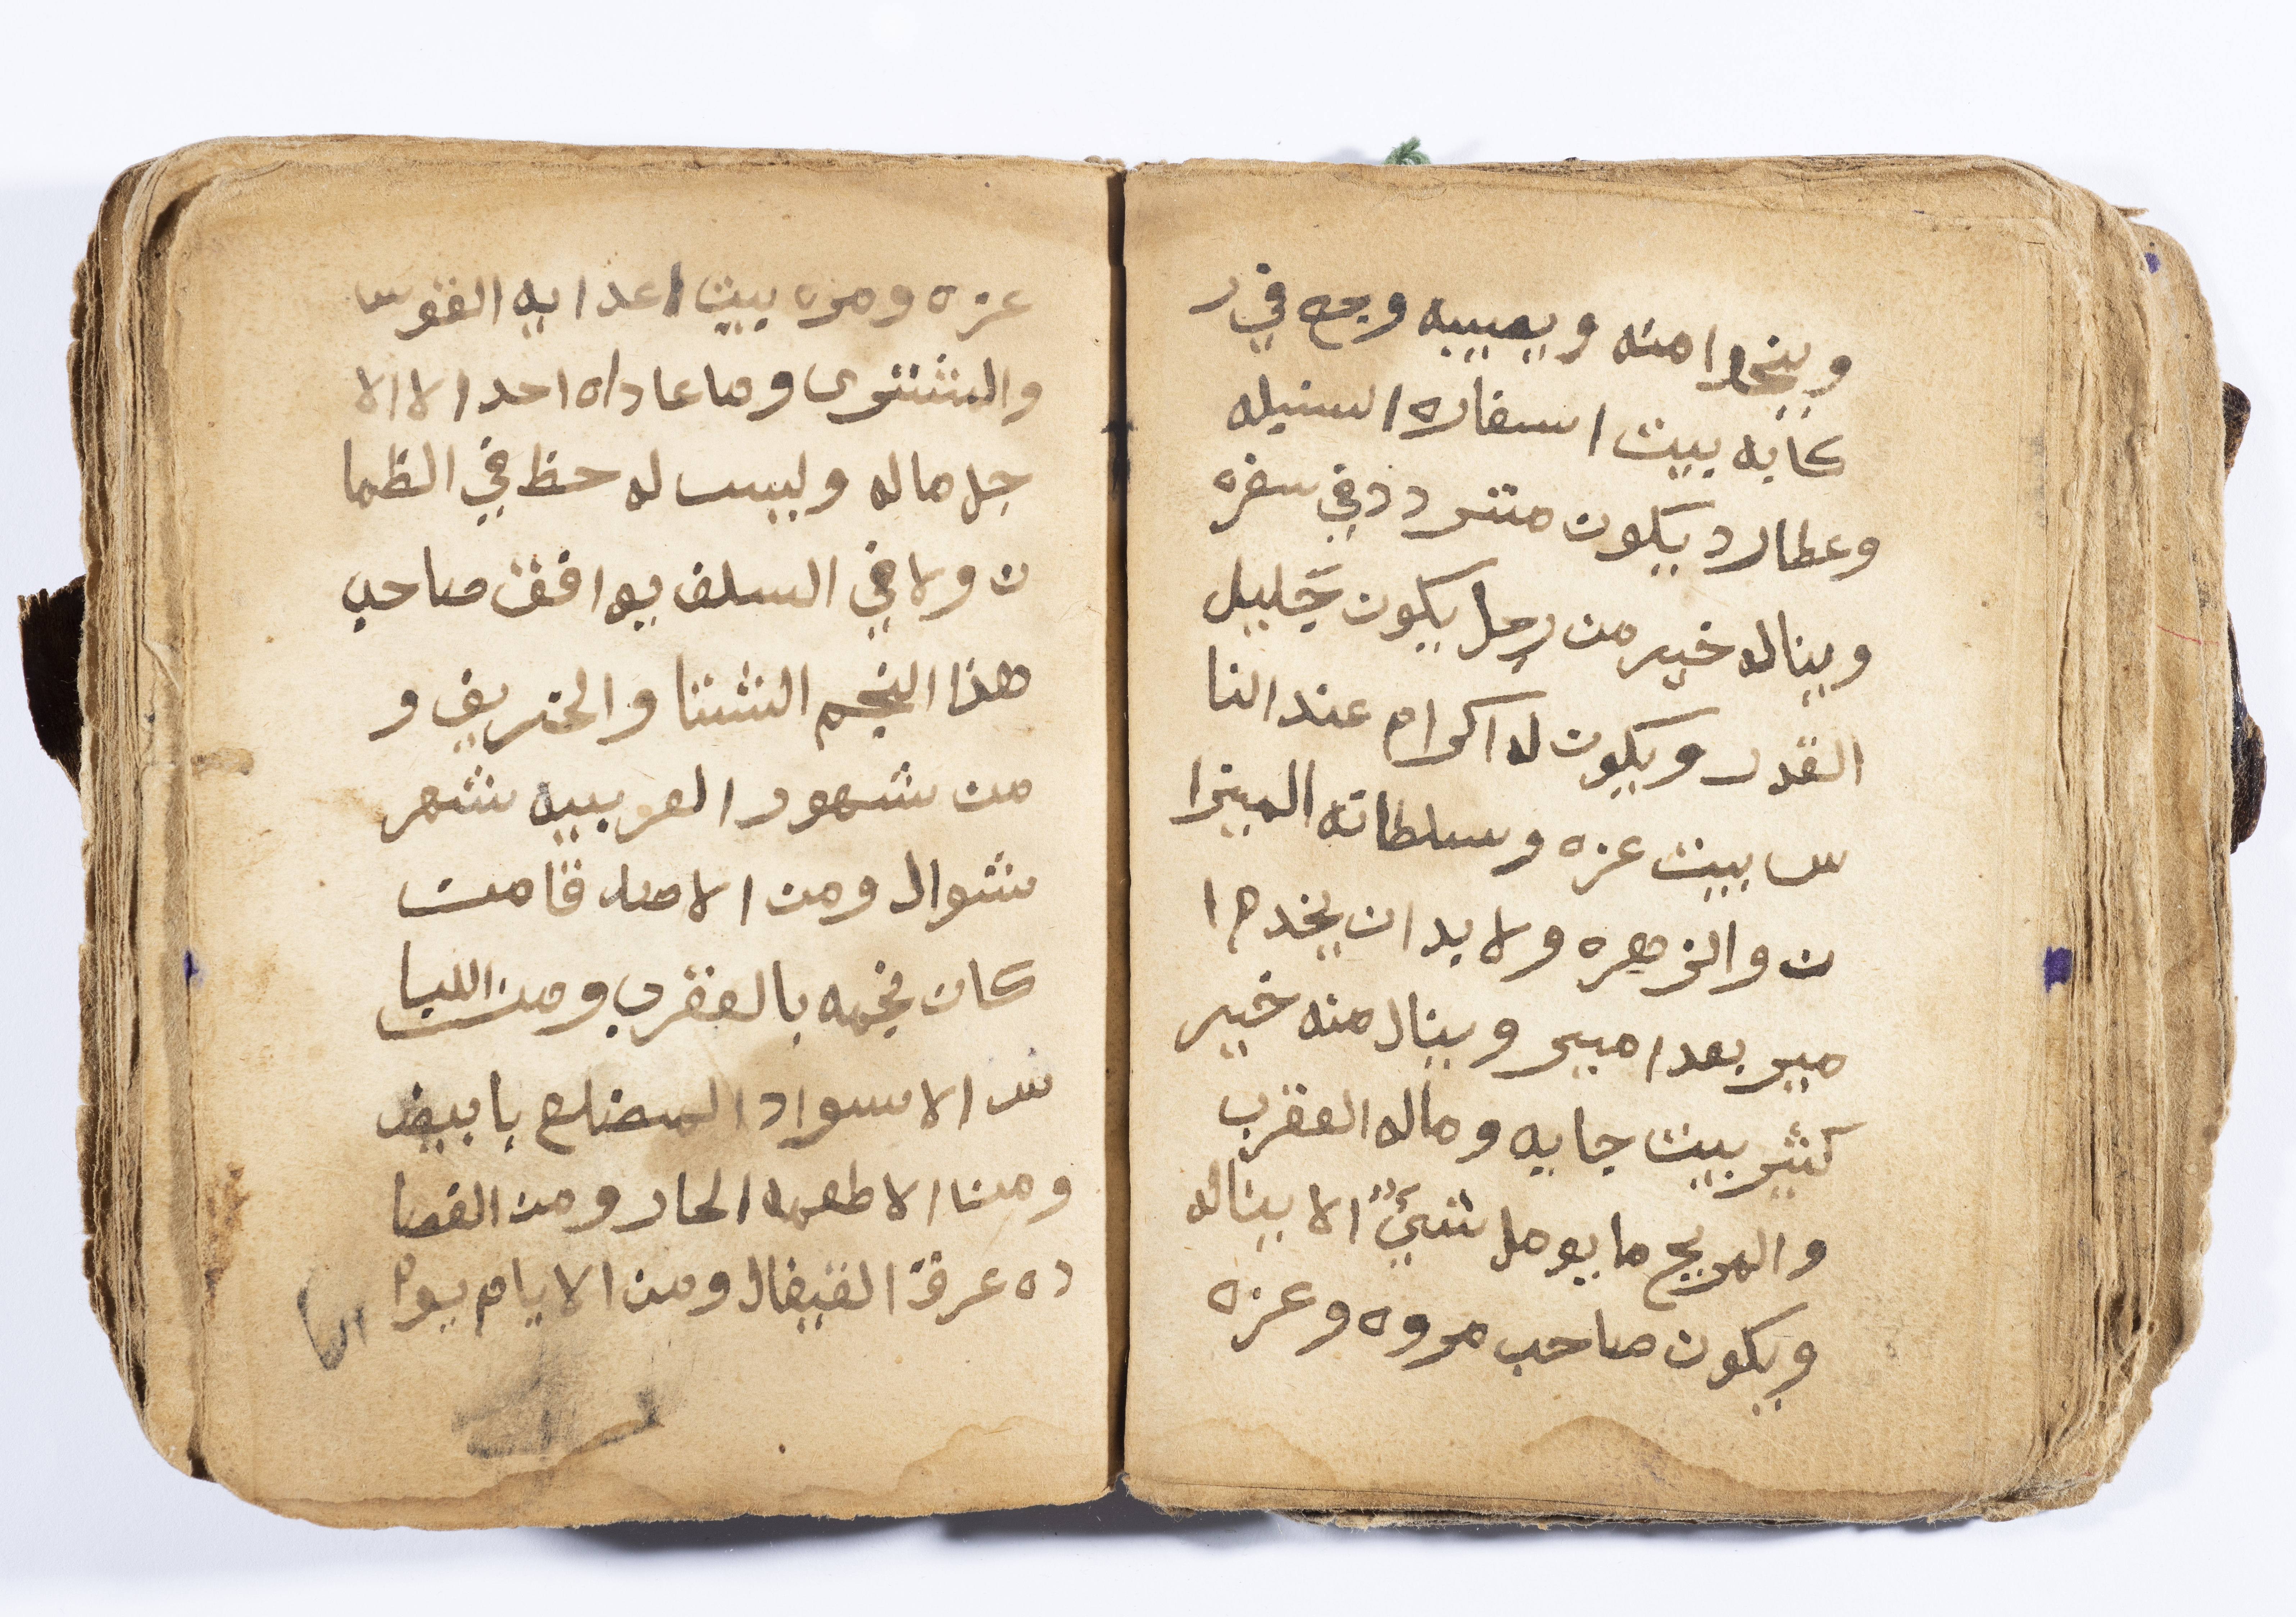 وينجوا منه ويصيبه وجع في ر
كابه بيت اسفاره السنبله
وعطارد يكون متردد في سفره
ويناله خير من رجل يكون جليل
القدر ويكون له اكرام عند النا
س بيت عزه وسلطانه الميزا
ن والزهره ولابد ان يخدم ا
مير بعد امير وينال منه خير
كثير بيت جابه وماله العقرب
والمريخ ما يومل شيءً الا يناله
ويكون صاحب مروه وعزه
عزه ومره بيت اعدايه القوس
والمشتري وما عاداه احد الا الا
جل ماله وليس له حظ في الظما
ن ولا في السلف يوافق صاحب
هذا النجم الشتا والخريف و
من شهور العربيه شهر
شوال ومن الاصله قامت
كان نجمه بالعقرب ومن اللبا
س الاسواد المضلع بابيض
ومن الاطعمه الحار ومن الفصا
ده عرق القيفال ومن الايام يوم